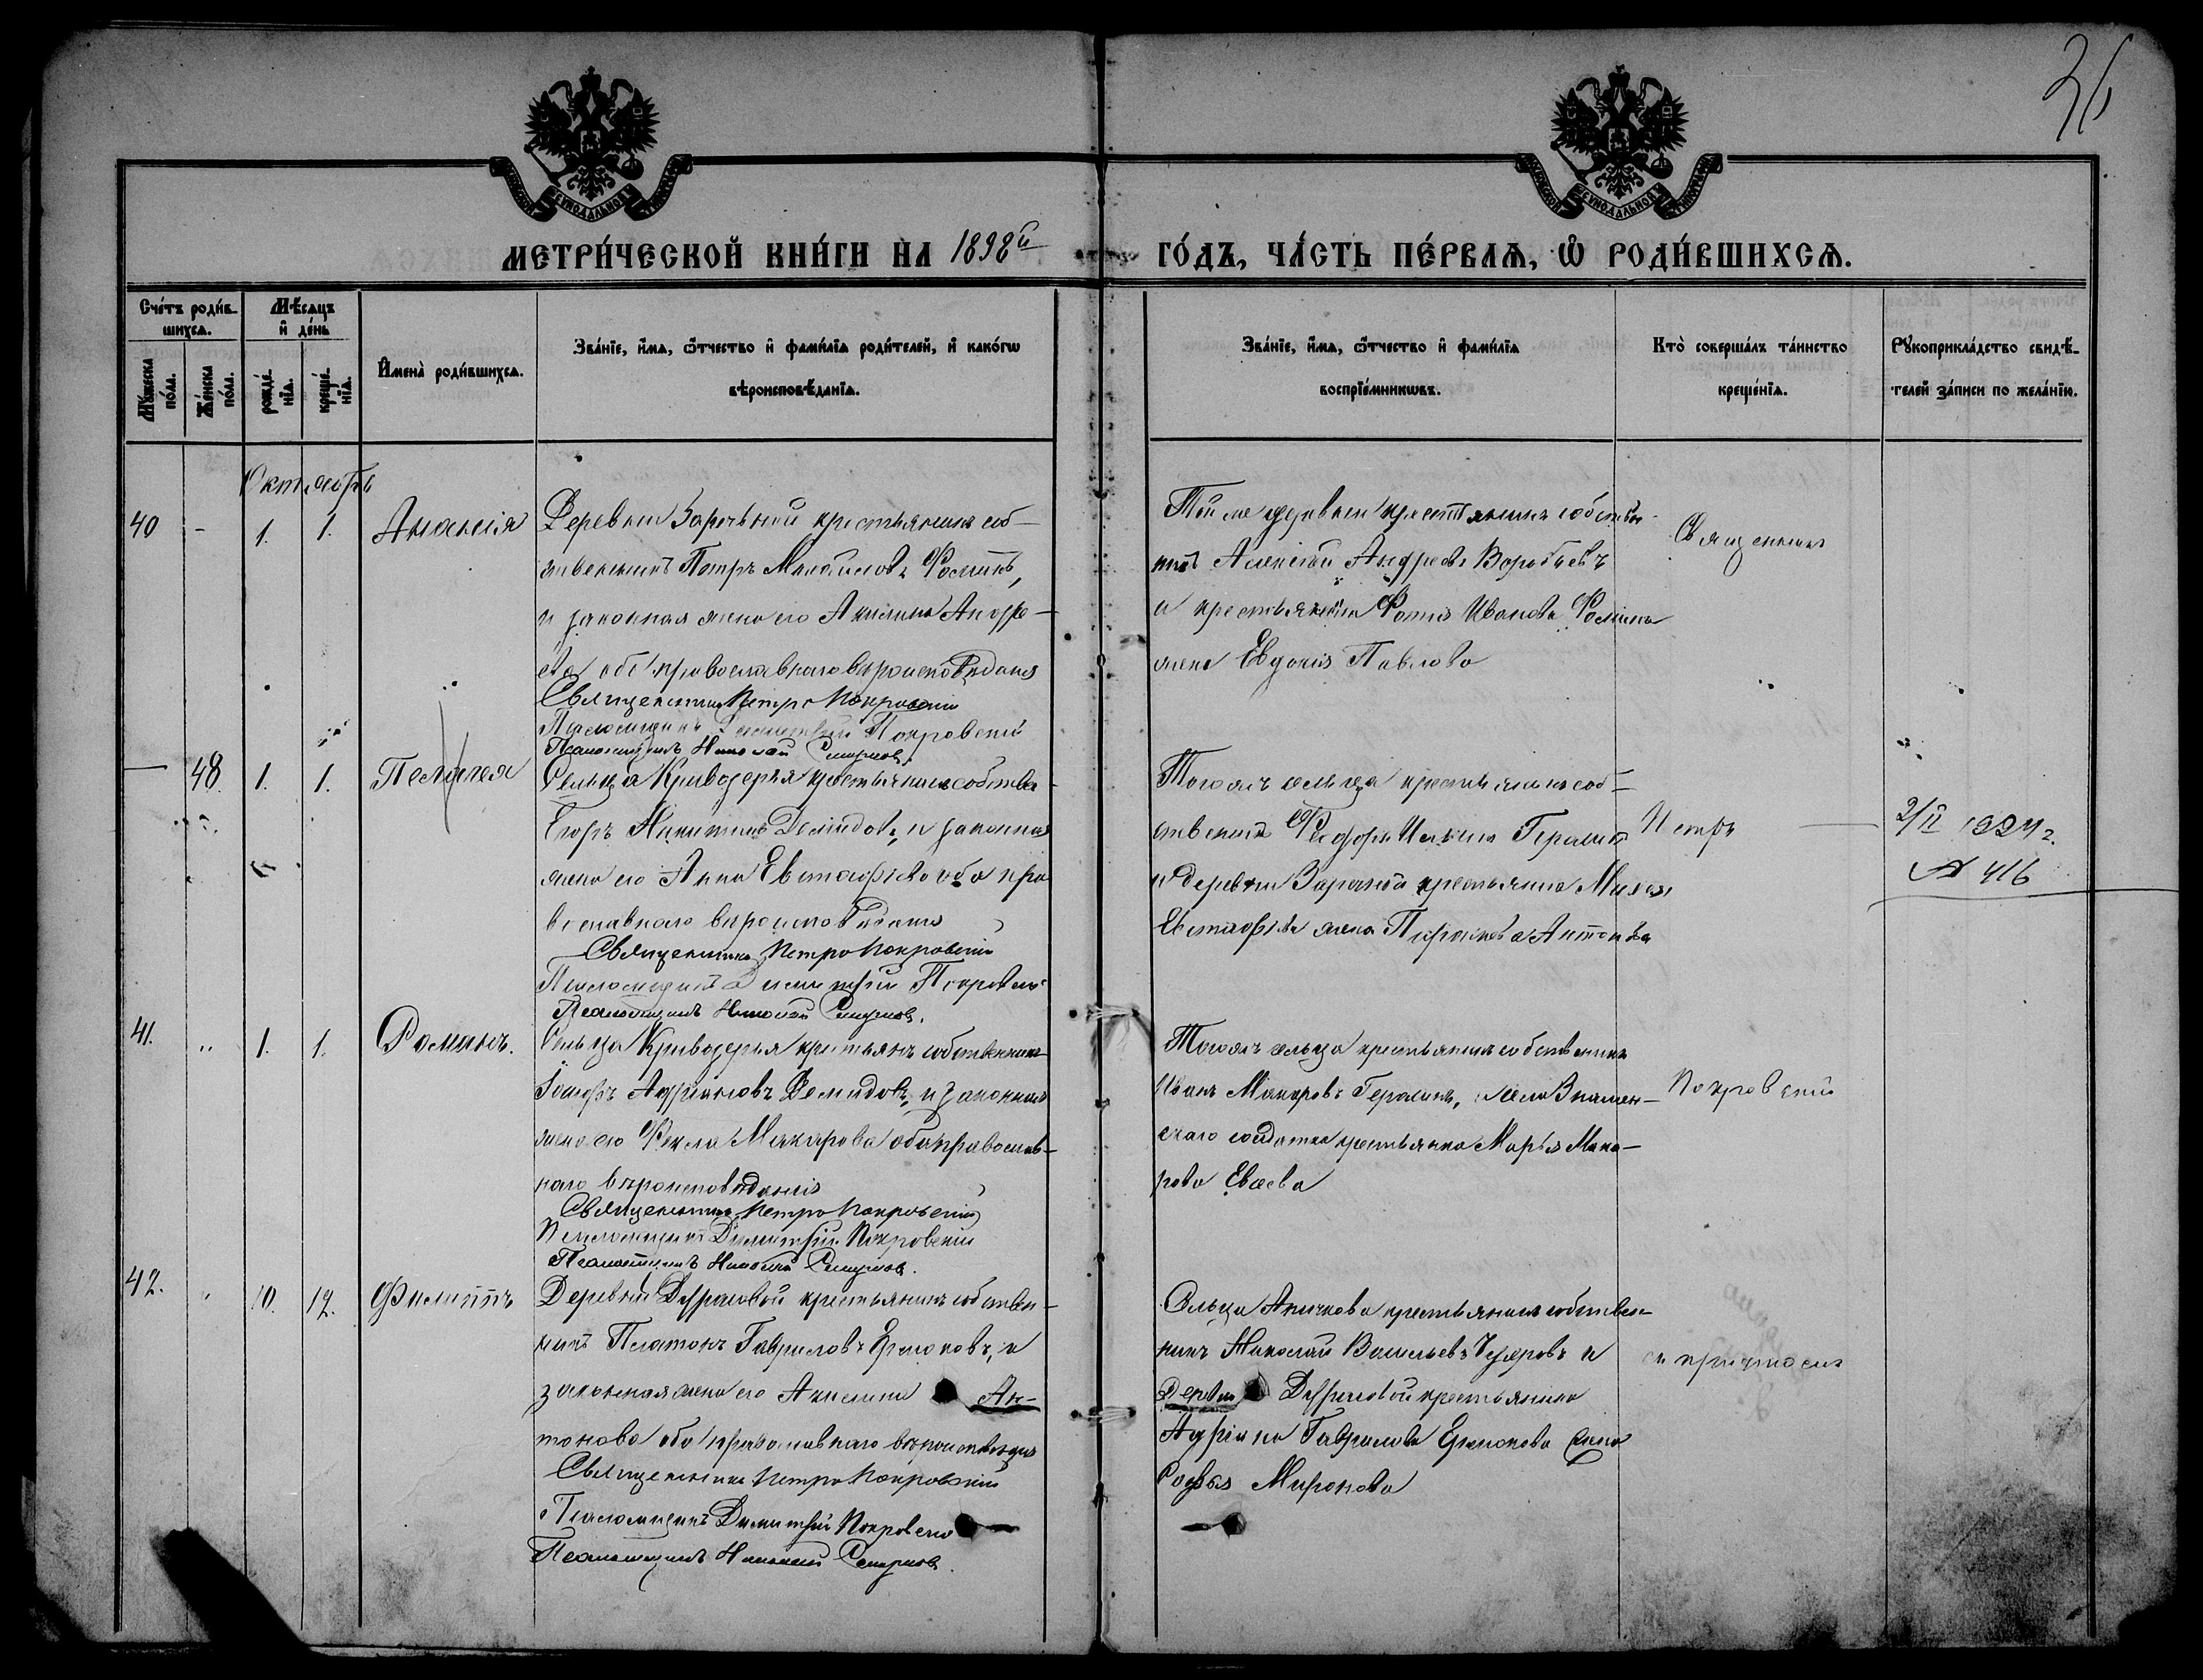 36
МЕТРИ́ЧЕСКОЙ КНИ́ГИ НА 1898й
ГО́ДЪ, ЧА́СТЬ ПЕ́РВАѦ, Ѡ РОДИ́ВШИХСѦ.
Сче́тъ роди́в-
шихсѧ.
Мѣ́сѧцъ
и҆ де́нь
Мꙋ́жеска
по́ла.
Же́нска
по́ла.
рожде́-
нїѧ.
креще́-
нїѧ.
И҆мена̀ роди́вшихсѧ.
Зва́нїе, и҆́мѧ, ѻ҆́тчество и҆ фами́лїѧ роди́телей, и҆ како́гѡ
вѣроисповѣ́данїѧ.
Зва́нїе, и҆́мѧ, ѻ҆́тчество и҆ фами́лїѧ
воспрїе́мникѡвъ.
Кто̀ соверша́лъ та́инство
креще́нїѧ.
Рꙋкоприкла́дство свидѣ́-
телей за́писи по жела́нїю.
Октябрь
40 - 1. 1. Ананія
Деревни Заречной крестьянинъ соб-
ственникъ Петръ Михайловъ Фоминъ,
и законная жена его Акилина Андре-
ева оба православнаго вѣроисповѣданія
Священникъ Петръ Покровскій
Псаломщикъ Димитрій Покровскій
Псаломщикъ Николай Смирновъ.
Той же деревни крестьянинъ собствен-
никъ Алексѣй Андреевъ Воробьевъ
и крестьянина Фомы Иванова Фомина
жена Евдокія Павлова
Священникъ
— 48. 1. 1. Пелагея
Сельца Криводерья крестьянинъ собствен-
Егоръ Никитинъ Демидовъ, и законная
жена его Анна Евстафьева оба пра
вославнаго вѣроисповѣданія
Священникъ Петръ Покровскій
Псаломщикъ Димитрій Покровскій
Псаломщикъ Николай Смирновъ.
Тогожъ сельца крестьянинъ соб-
ственникъ Ѳеодоръ Ильинъ Герасим
и деревни Заречной крестьянина Михаила
Евстафьева жена Параскева Антонова
Петръ
2/II 1924 г.
№ 416
41. " 1. 1. Романъ.
Сельца Криводерья крестьянъ собственникъ
Адріановъ Демидовъ, и законная
жена его Ѳекла Макарова оба православ-
наго вѣроисповѣданія
Священникъ Петръ Покровскій
Псаломщикъ Димитрій Покровскій
Псаломщикъ Николай Смирновъ.
Тогожъ сельца крестьянинъ собственникъ
Иванъ Макаровъ Герасимъ, и села Знамен-
скаго солдатка крестьянка Марья Мака-
рова Евсева
Покровскій
42. " 10. 12. Филиппъ
Деревни крестьянинъ собствен-
никъ Платонъ Гавриловъ Ермоковъ, и
законная жена его Акилина Ан-
тонова оба православнаго вѣроисповѣданія
Священникъ Петръ Покровскій
Псаломщикъ Димитрій Покровскій
Псаломщикъ Николай Смирновъ.
Сельца Аничкова крестьянинъ собствен-
никъ Николай Васильевъ и
Деревни крестьянина
Адріана Гаврилова Ермокова жена
Софья Миронова
съ причтомъ